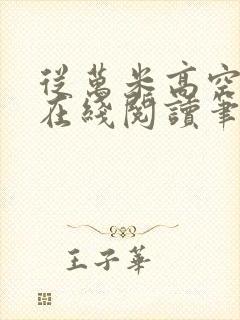 從萬米高空
在綫閱讀筆
王子華